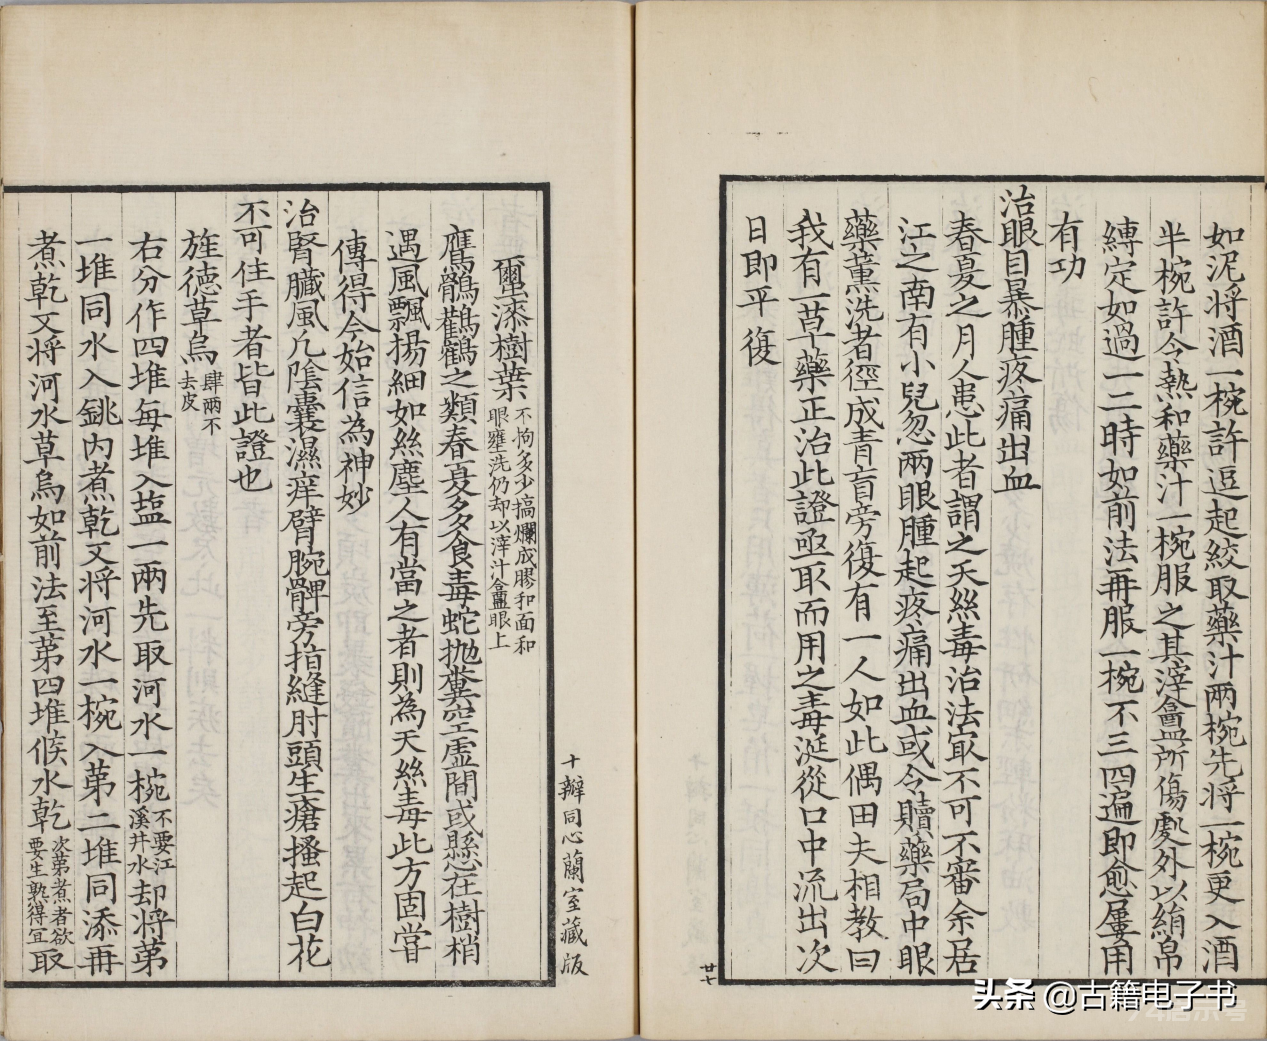 如泥将酒一椀許逗起絞取藥汁兩椀先将一椀更入酒
半椀許令熱和藥汁一椀服之其滓盦所傷處外以絹帛
縛定如過一二時如前法再服一椀不三四遍即愈屢用
有功
治眼目暴腫疼痛出血
春夏之月人患此者謂之天絲毒治法㝡不可不審余居
江之南有小兒忽兩眼腫起疼痛出血或令贖藥局中眼
藥薰洗者徑成青盲旁復有一人如此偶田夫相教曰
我有一草藥正治此證亟取而用之毒涎從口中流出次
日即平復
廿七
十瓣同心蘭室藏版
壐漆樹葉不拘多少搗爛成膠和面和
眼壅洗仍却以滓汁盦眼上
鷹鶻鸛鶴之類春夏多食毒蛇抛糞空虚間或懸在樹梢
遇風飄揚細如絲塵人有當之者則為天絲毒此方固嘗
傳得今始信為神妙
治腎臟風凢陰囊濕痒臂腕髀旁指縫肘頭生瘡搔起白花
不可住手者皆此證也
旌德草烏肆兩不
去皮
右分作四堆每堆入塩一兩先取河水一椀不要江
溪井水却将第
一堆同水入銚内煮乾又将河水一椀入第二堆同添再
煮乾又将河水草烏如前法至第四堆候水乾次第煮者欲
要生熟得冝取
头条 @古籍电子书